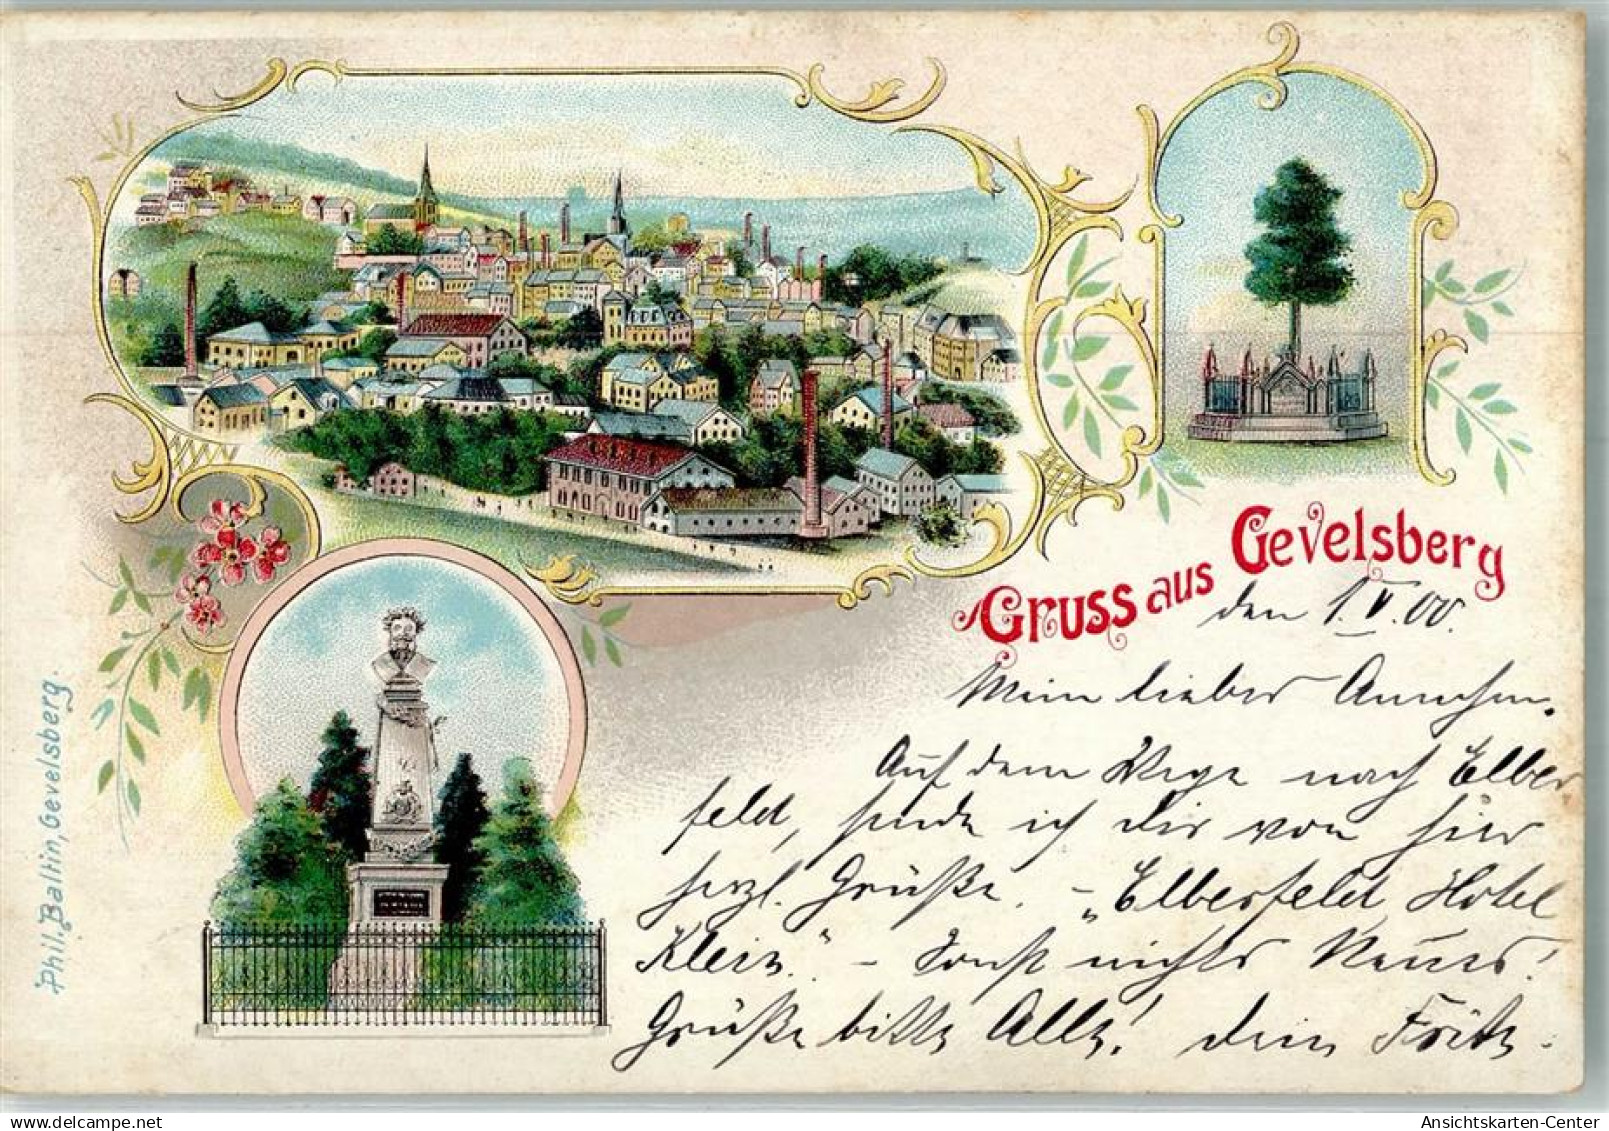 Gruss aus Gevelsberg
den 1.V.00.
Mein lieber
Auf dem Wege nach Elber
feld, sende ich dir von hier
herzl. Grüße. – „Elberfeld Hotel
Klein." – Sonst nichts Neues!
Grüße bitte Alle! dein Fritz.
Phil. Baltin, Gevelsberg.
Ansichtskarten-Center